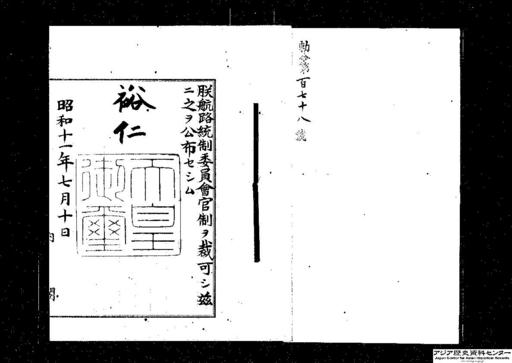 勅令第百七十八號
朕航路統制委員會官制ヲ裁可シ茲
ニ之ヲ公布セシム
裕仁
天皇
御璽
昭和十一年七月十日
内閣
アジア歴史資料センター
Japan Center for Asian Historical Records